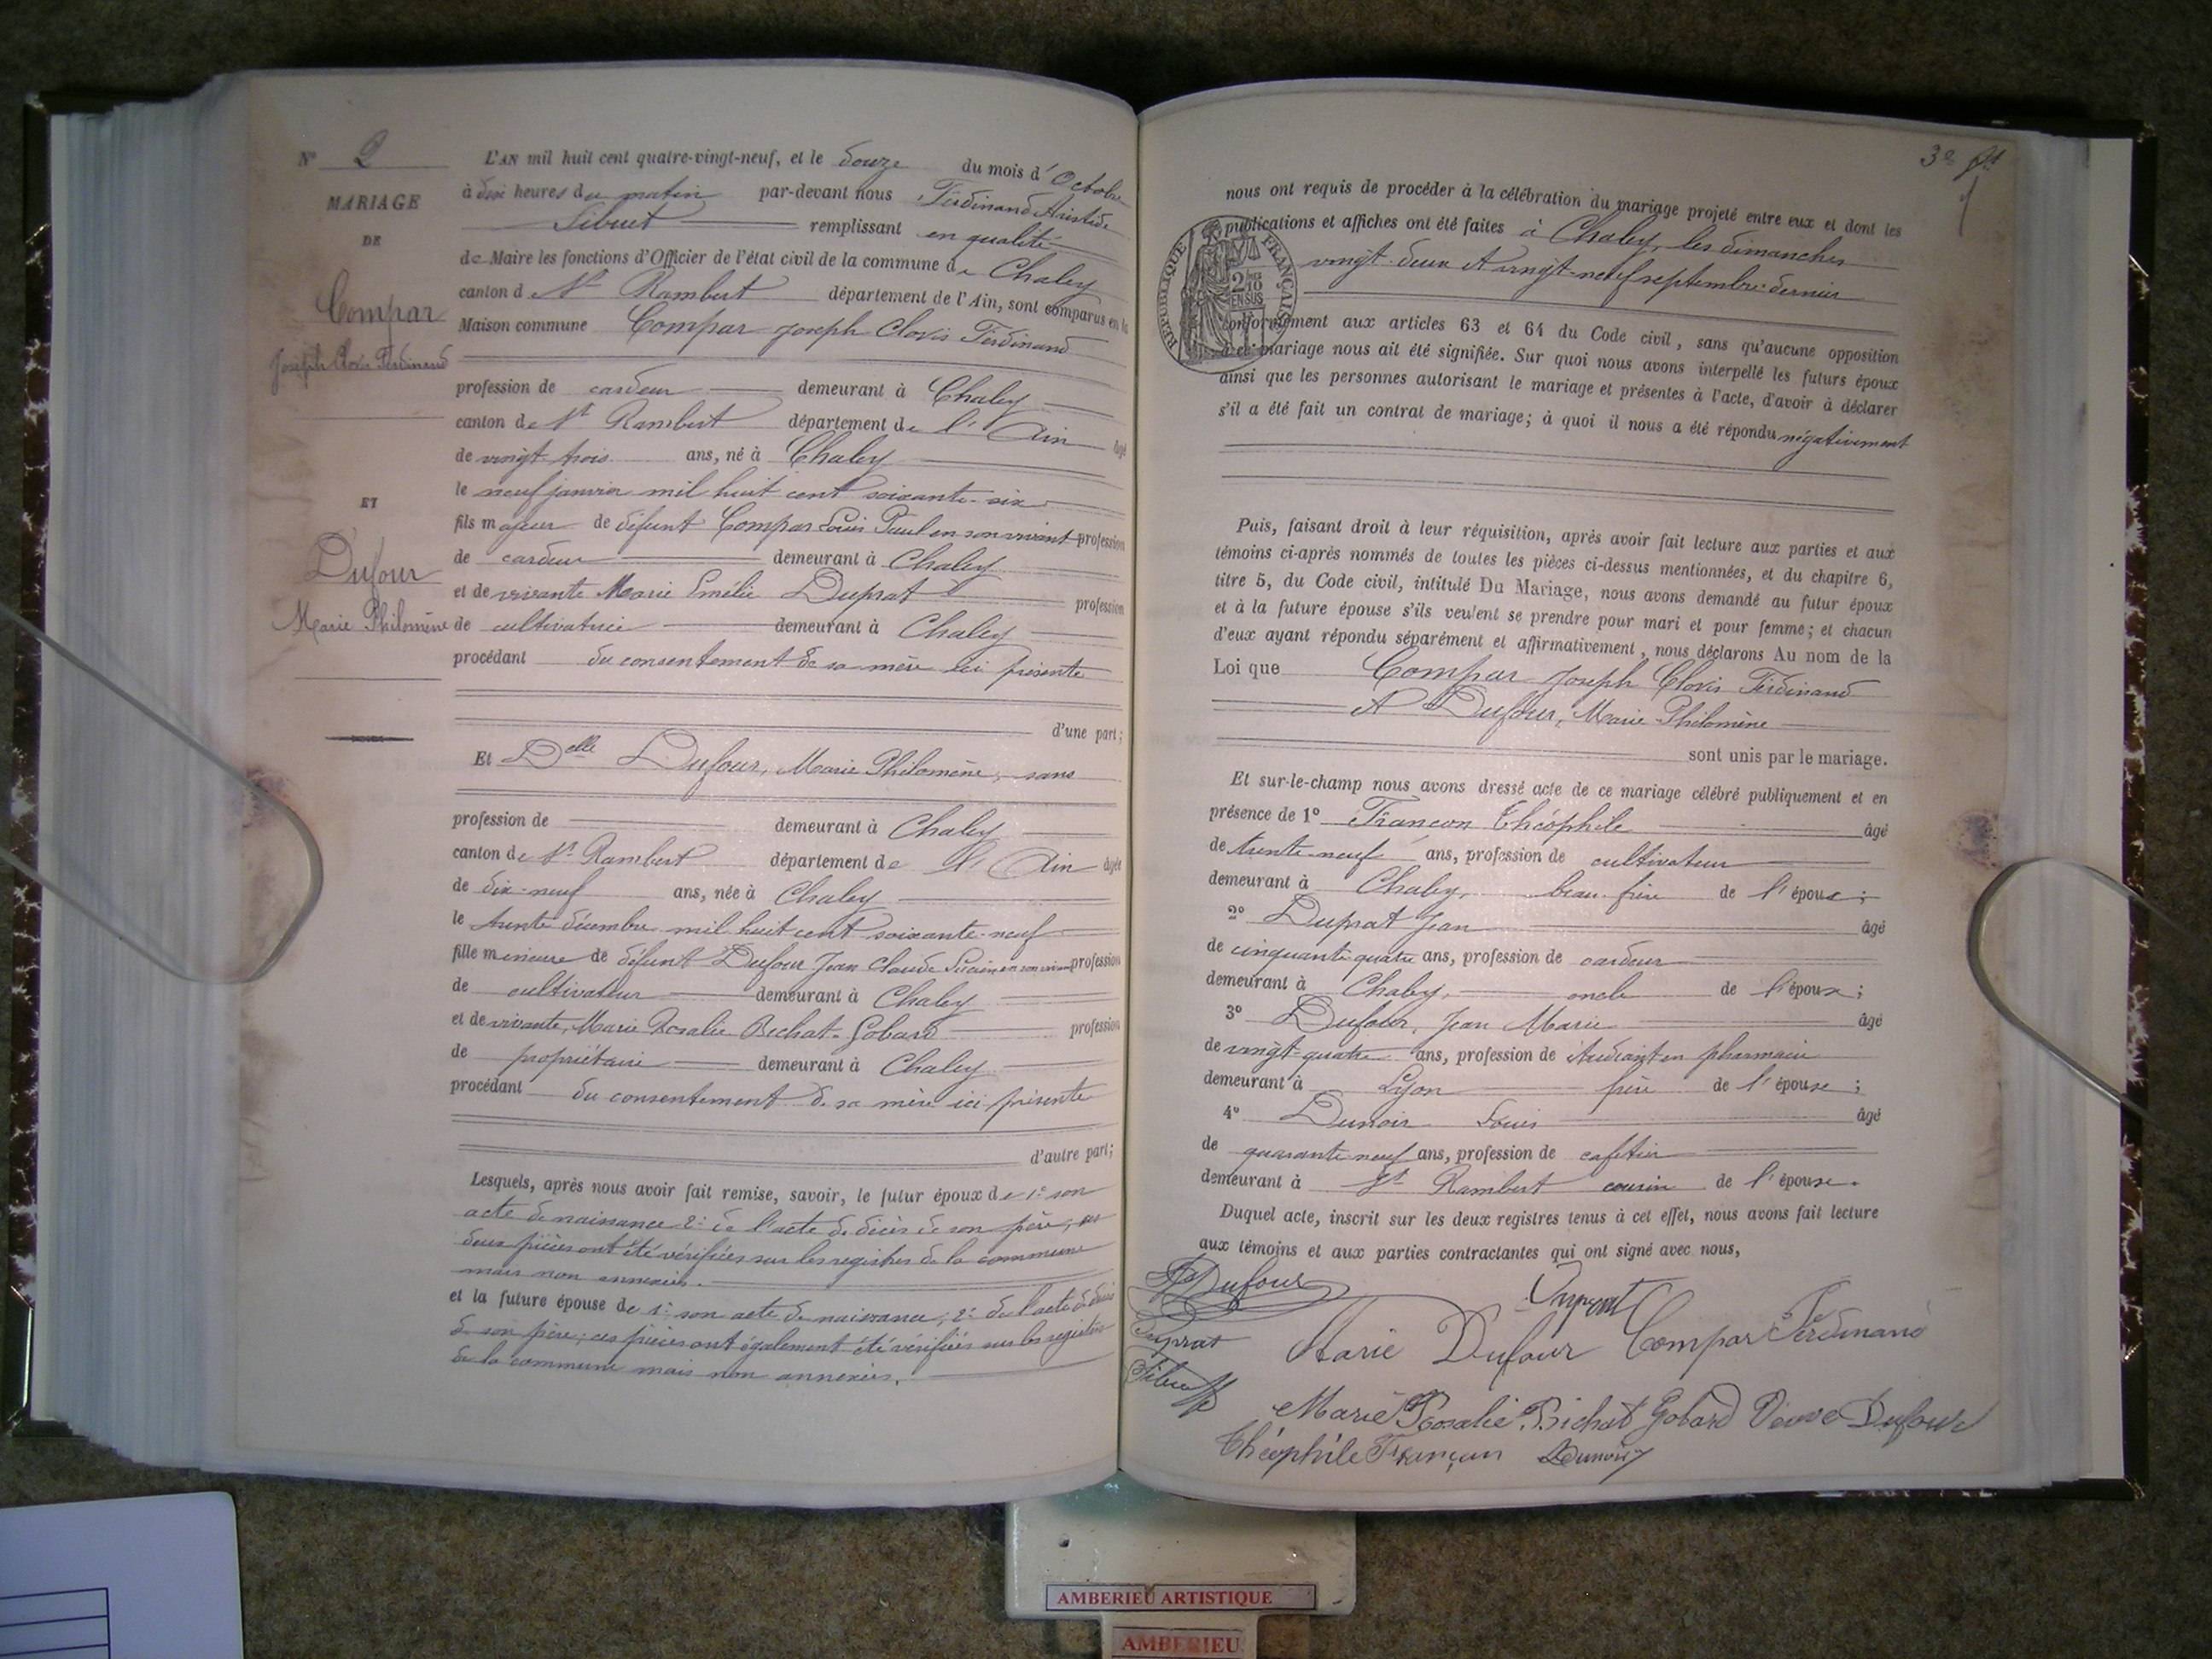 N° 2
MARIAGE
DE
Compar
Joseph Clovis Ferdinand
ET
Dufour
Marie Philomène
L'AN mil huit cent quatre-vingt-neuf, et le douze du mois d'Octobre
à dix heures du matin par-devant nous Ferdinand Aristide
Sibuet remplissant en qualité
de Maire les fonctions d'Officier de l'état civil de la commune de Chaley
canton d St Rambert département de l'Ain, sont comparus en la
Maison commune Compar Joseph Clovis Ferdinand
profession de cardeur demeurant à Chaley
canton de St Rambert département de l'Ain âgé
de vingt-trois ans, né à Chaley
le neuf janvier mil huit cent soixante-six
fils majeur de défunt Compar Louis Paul en son vivant profession
de cardeur demeurant à Chaley
et de vivante Marie Emélie Duprat profession
de cultivatrice demeurant à Chaley
procédant du consentement de sa mère ici présente
d'une part;
Et Delle Dufour, Marie Philomène, sans
profession de demeurant à Chaley
canton de St Rambert département de l'Ain âgée
de dix-neuf ans, née à Chaley
le trente décembre mil huit cent soixante-neuf
fille mineure de défunt Dufour Jean Claude en son vivant profession
de cultivateur demeurant à Chaley
et de vivante, Marie Rosalie Bichat-Gobard profession
de propriétaire demeurant à Chaley
procédant du consentement de sa mère ici présente
d'autre part;
Lesquels, après nous avoir fait remise, savoir, le futur époux de 1° son
acte de naissance 2° de l'acte de décès de son père, ces
deux pièces ont été vérifiées sur les registres de la commune
mais non annexées.
et la future épouse de 1° son acte de naissance, 2° de l'acte de décès
de son père; ces pièces ont également été vérifiées sur les registres
de la commune mais non annexées.
3e
nous ont requis de procéder à la célébration du mariage projeté entre eux et dont les
publications et affiches ont été faites à Chaley, les dimanches
vingt-deux et vingt-neuf septembre dernier
conformément aux articles 63 et 64 du Code civil, sans qu'aucune opposition
à ce mariage nous ait été signifiée. Sur quoi nous avons interpellé les futurs époux
ainsi que les personnes autorisant le mariage et présentes à l'acte, d'avoir à déclarer
s'il a été fait un contrat de mariage; à quoi il nous a été répondu négativement
RÉPUBLIQUE FRANÇAISE
2/10 EN SUS
Puis, faisant droit à leur réquisition, après avoir fait lecture aux parties et aux
témoins ci-après nommés de toutes les pièces ci-dessus mentionnées, et du chapitre 6,
titre 5, du Code civil, intitulé Du Mariage, nous avons demandé au futur époux
et à la future épouse s'ils veulent se prendre pour mari et pour femme; et chacun
d'eux ayant répondu séparément et affirmativement, nous déclarons Au nom de la
Loi que Compar Joseph Clovis Ferdinand
Et Dufour, Marie Philomène
sont unis par le mariage.
Et sur-le-champ nous avons dressé acte de ce mariage célébré publiquement et en
présence de 1° Françon Théophile âgé
de trente-neuf ans, profession de cultivateur
demeurant à Chaley, beau-frère de l'épouse;
2° Duprat Jean âgé
de cinquante-quatre ans, profession de cardeur
demeurant à Chaley, oncle de l'époux;
3° Dufour, Jean Marie âgé
de vingt-quatre ans, profession de étudiant en pharmacie
demeurant à Lyon frère de l'épouse;
4° Dunoir Louis âgé
de quarante-neuf ans, profession de cafetier
demeurant à St Rambert cousin de l'épouse.
Duquel acte, inscrit sur les deux registres tenus à cet effet, nous avons fait lecture
aux témoins et aux parties contractantes qui ont signé avec nous,
Dufour Duprat
Duprat Marie Dufour Compar Ferdinand
Sibuet
Marie Rosalie Bichat Gobard Veuve Dufour
Théophile Françon Dunoir
AMBERIEU ARTISTIQUE
AMBERIEU